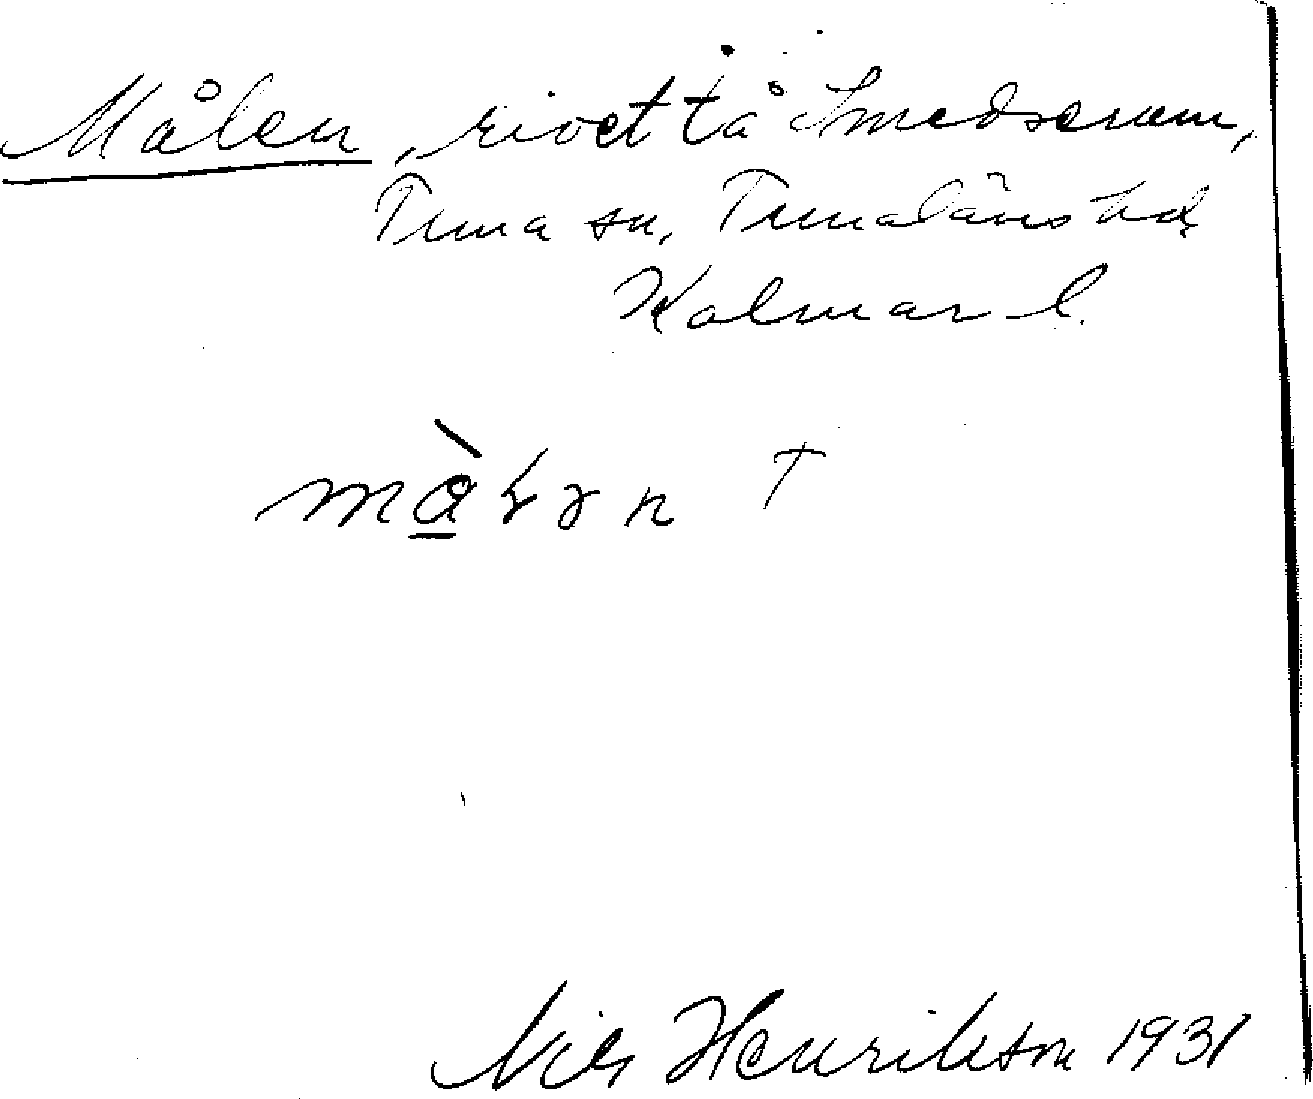 Målen, rivet tå Smedserum,
Tuna sn, Tunaläns hd
Kalmar l.
mɑ̲̀ɽən †
Nils Henrikson 1931